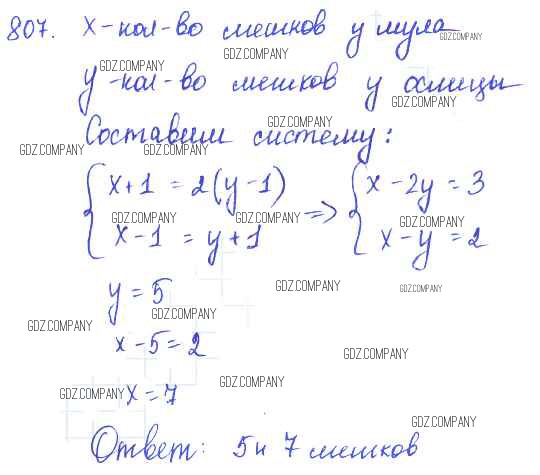 807. x - кол-во мешков у мула
GDZ.COMPANY
GDZ.COMPANY
GDZ.COMPANY
y - кол-во мешков у ослицы
GDZ.COMPANY
GDZ.COMPANY
Составим систему:
GDZ.COMPANY GDZ.COMPANY
x + 1 = 2(y - 1) x - 2y = 3
GDZ.COMPANY GDZ.COMPANY ⇒ GDZ.COMPANY
x - 1 = y + 1 x - y = 2
y = 5 GDZ.COMPANY GDZ.COMPANY
GDZ.COMPANY
GDZ.COMPANY
x - 5 = 2
GDZ.COMPANY
GDZ.COMPANY
GDZ.COMPANY x = 7
GDZ.COMPANY
Ответ: 5 и 7 мешков